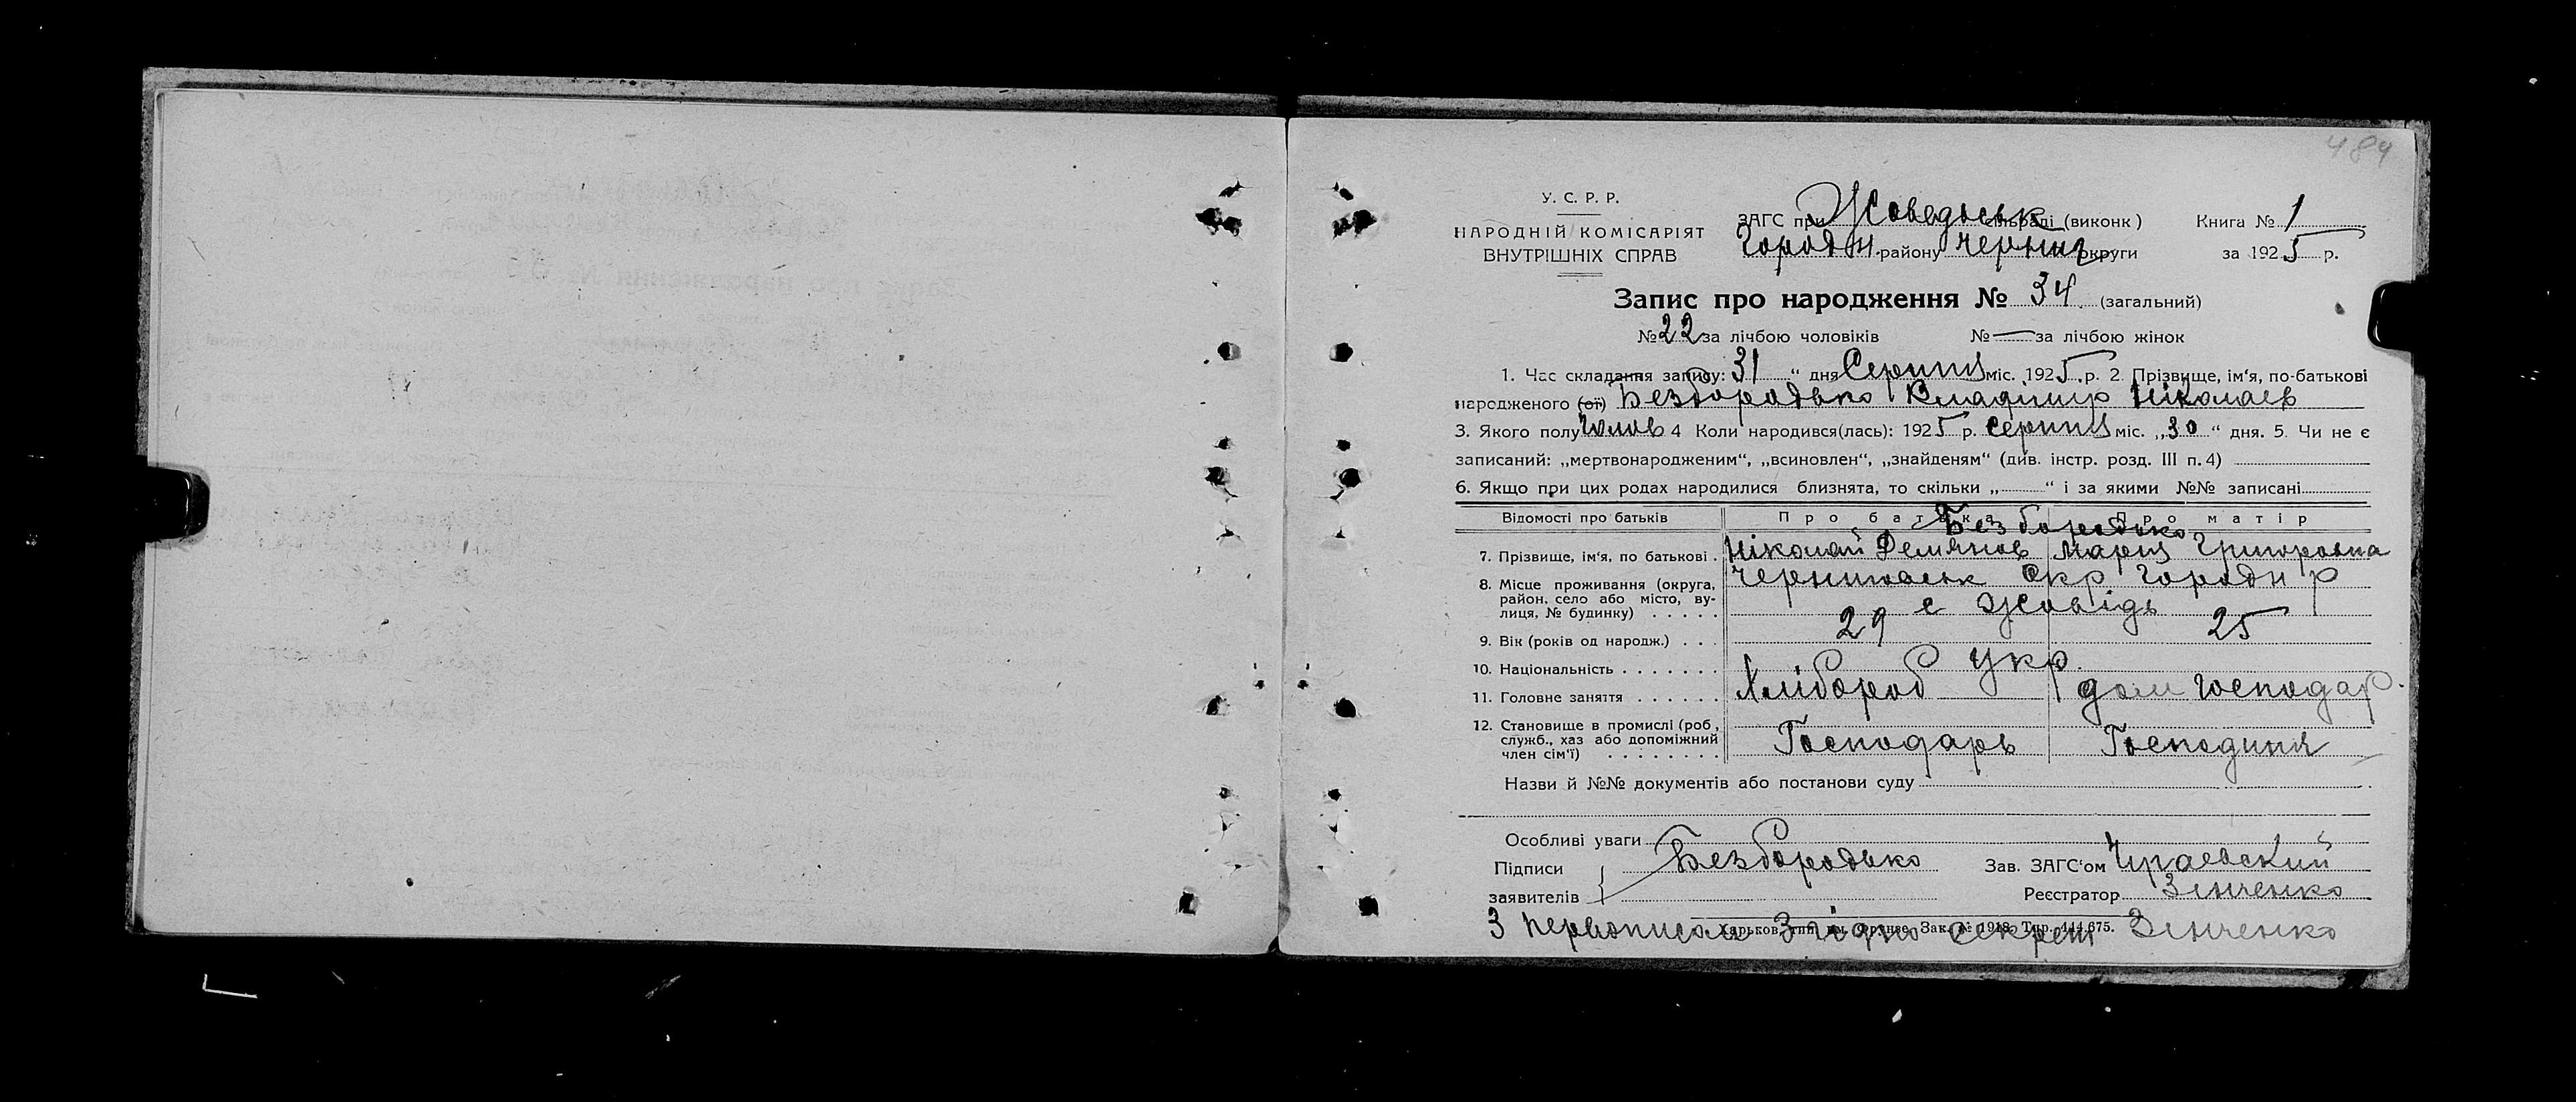 484
У. С. Р. Р.
НАРОДНІЙ КОМІСАРІЯТ
ВНУТРІШНІХ СПРАВ
ЗАГС при Жоведьськ сільраді (виконк)
Городн. району Черниг округи
Книга № 1
за 1925 р.
Запис про народження № 34. (загальний)
№ 22 за лічбою чоловіків № — за лічбою жінок
1. Час складання запису: 31 " дня Серпня міс. 1925 р. 2. Прізвище, ім'я, по-батькові
народженого (ої) Безбородько Владимир Ніколаев
3. Якого полу Чолов 4 Коли народився(лась): 1925 р. Серпня міс. „30" дня. 5. Чи не є
записаний: „мертвонародженим", „всиновлен", „знайденям" (див. інстр. розд. III п. 4)
6. Якщо при цих родах народилися близнята, то скільки „ " і за якими №№ записані
Відомості про батьків Про батька Про матір
Безбородько
7. Прізвище, ім'я, по батькові Ніколай Демянов Мария Григоровна
8. Місце проживання (округа, район, село або місто, вулиця, № будинку) Черниговськ Окр Городн р
с Жовідь
9. Вік (років од народж.) 29 25
10. Національність Укр.
11. Головне заняття Хлібороб дом господар.
12. Становище в промислі (роб, служб., хаз або допоміжний член сім'ї) Господарь Господиня
Назви й №№ документів або постанови суду
Особливі уваги
Підписи заявителів Безбородько
Зав. ЗАГС'ом
Реєстратор Зінченко
Харьков, тип. им. Фрунзе. Зак. № 1918. Тир. 444.675.
З первописом Згідно секрет Зінченко